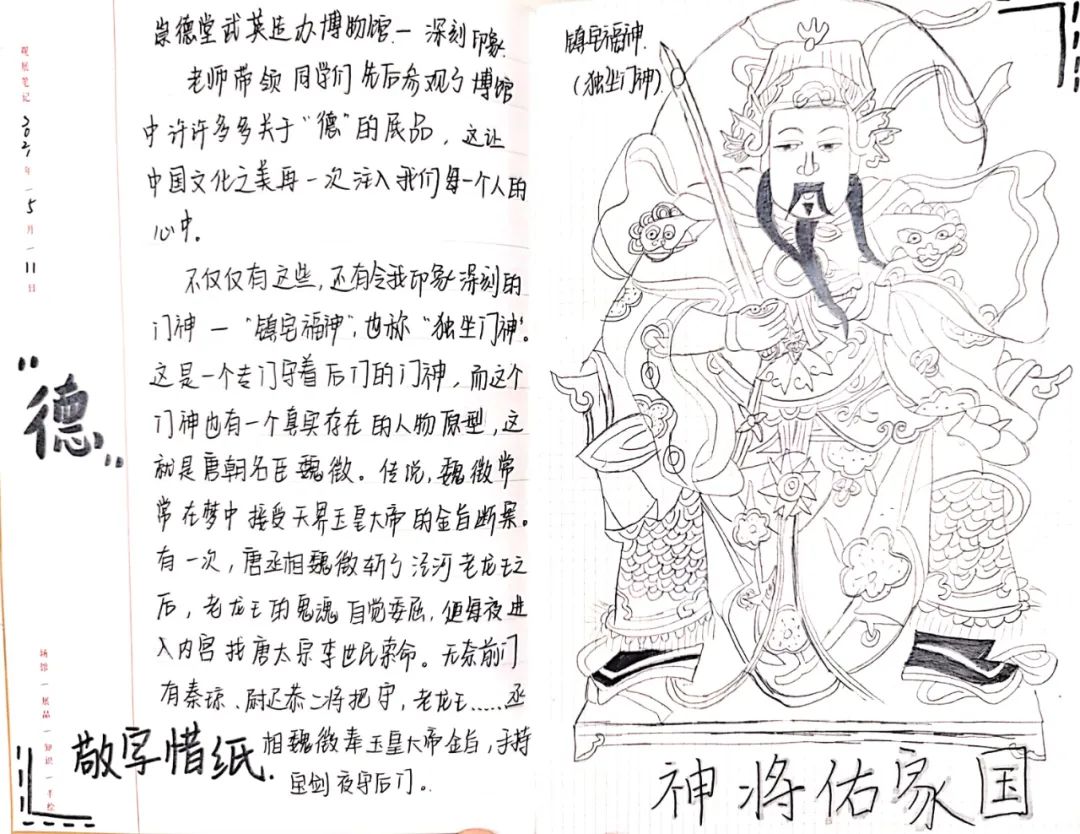 崇德堂武英造办博物馆一深刻印象
老师带领同学们先后参观了博馆
中许许多多关于“德”的展品，这让
中国文化之美再一次注入我们每一个人的
心中。
不仅仅有这些，还有令我印象深刻的
门神一“镇宅福神”，也称“独坐门神”。
这是一个专门守着后门的门神，而这个
门神也有一个真实存在的人物原型，这
就是唐朝名臣魏徵。传说，魏徵常
常在梦中接受天界玉皇大帝的金旨断案。
有一次，唐丞相魏徵斩了泾河老龙王之
后，老龙王的鬼魂自觉委屈，便每夜进
入内宫找唐太宗李世民索命。无奈前门
有秦琼、尉迟恭二将把守，老龙王……丞
相魏徵奉玉皇大帝金旨，手持
宝剑夜守后门。
观展笔记2021年5月11日
“德”
场馆｜展品｜知识｜手绘
敬字惜纸.
镇宅福神.
（独坐门神）
神将佑家国